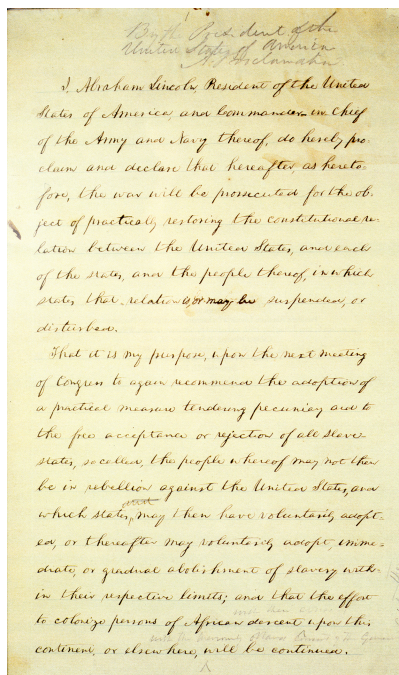 By the President of the
United States of America
A Proclamation
I, Abraham Lincoln, President of the United
States of America, and Commander-in-Chief
of the Army and Navy thereof, do hereby pro-
claim and declare that hereafter, as hereto-
fore, the war will be prossecuted for the ob-
ject of practically restoring the constitutional re-
lation between the United States, and each
of the states, and the people thereof, in which
states that relation is, or may be suspended, or
disturbed.
That it is my purpose, upon the next meeting
of Congress to again recommend the adoption of
a practical measure tendering pecuniary aid to
the free acceptance or rejection of all slave-
states, so called, the people whereof may not then
be in rebellion against the United States, and
and
which states, may then have voluntarily adopt-
ed, or thereafter may voluntarily adopt, imme-
diate, or gradual abolishment of slavery with-
in their respective limits; and that the effort
with their consent
to colonize persons of African descent upon this
continent, or elsewhere, will be continued.